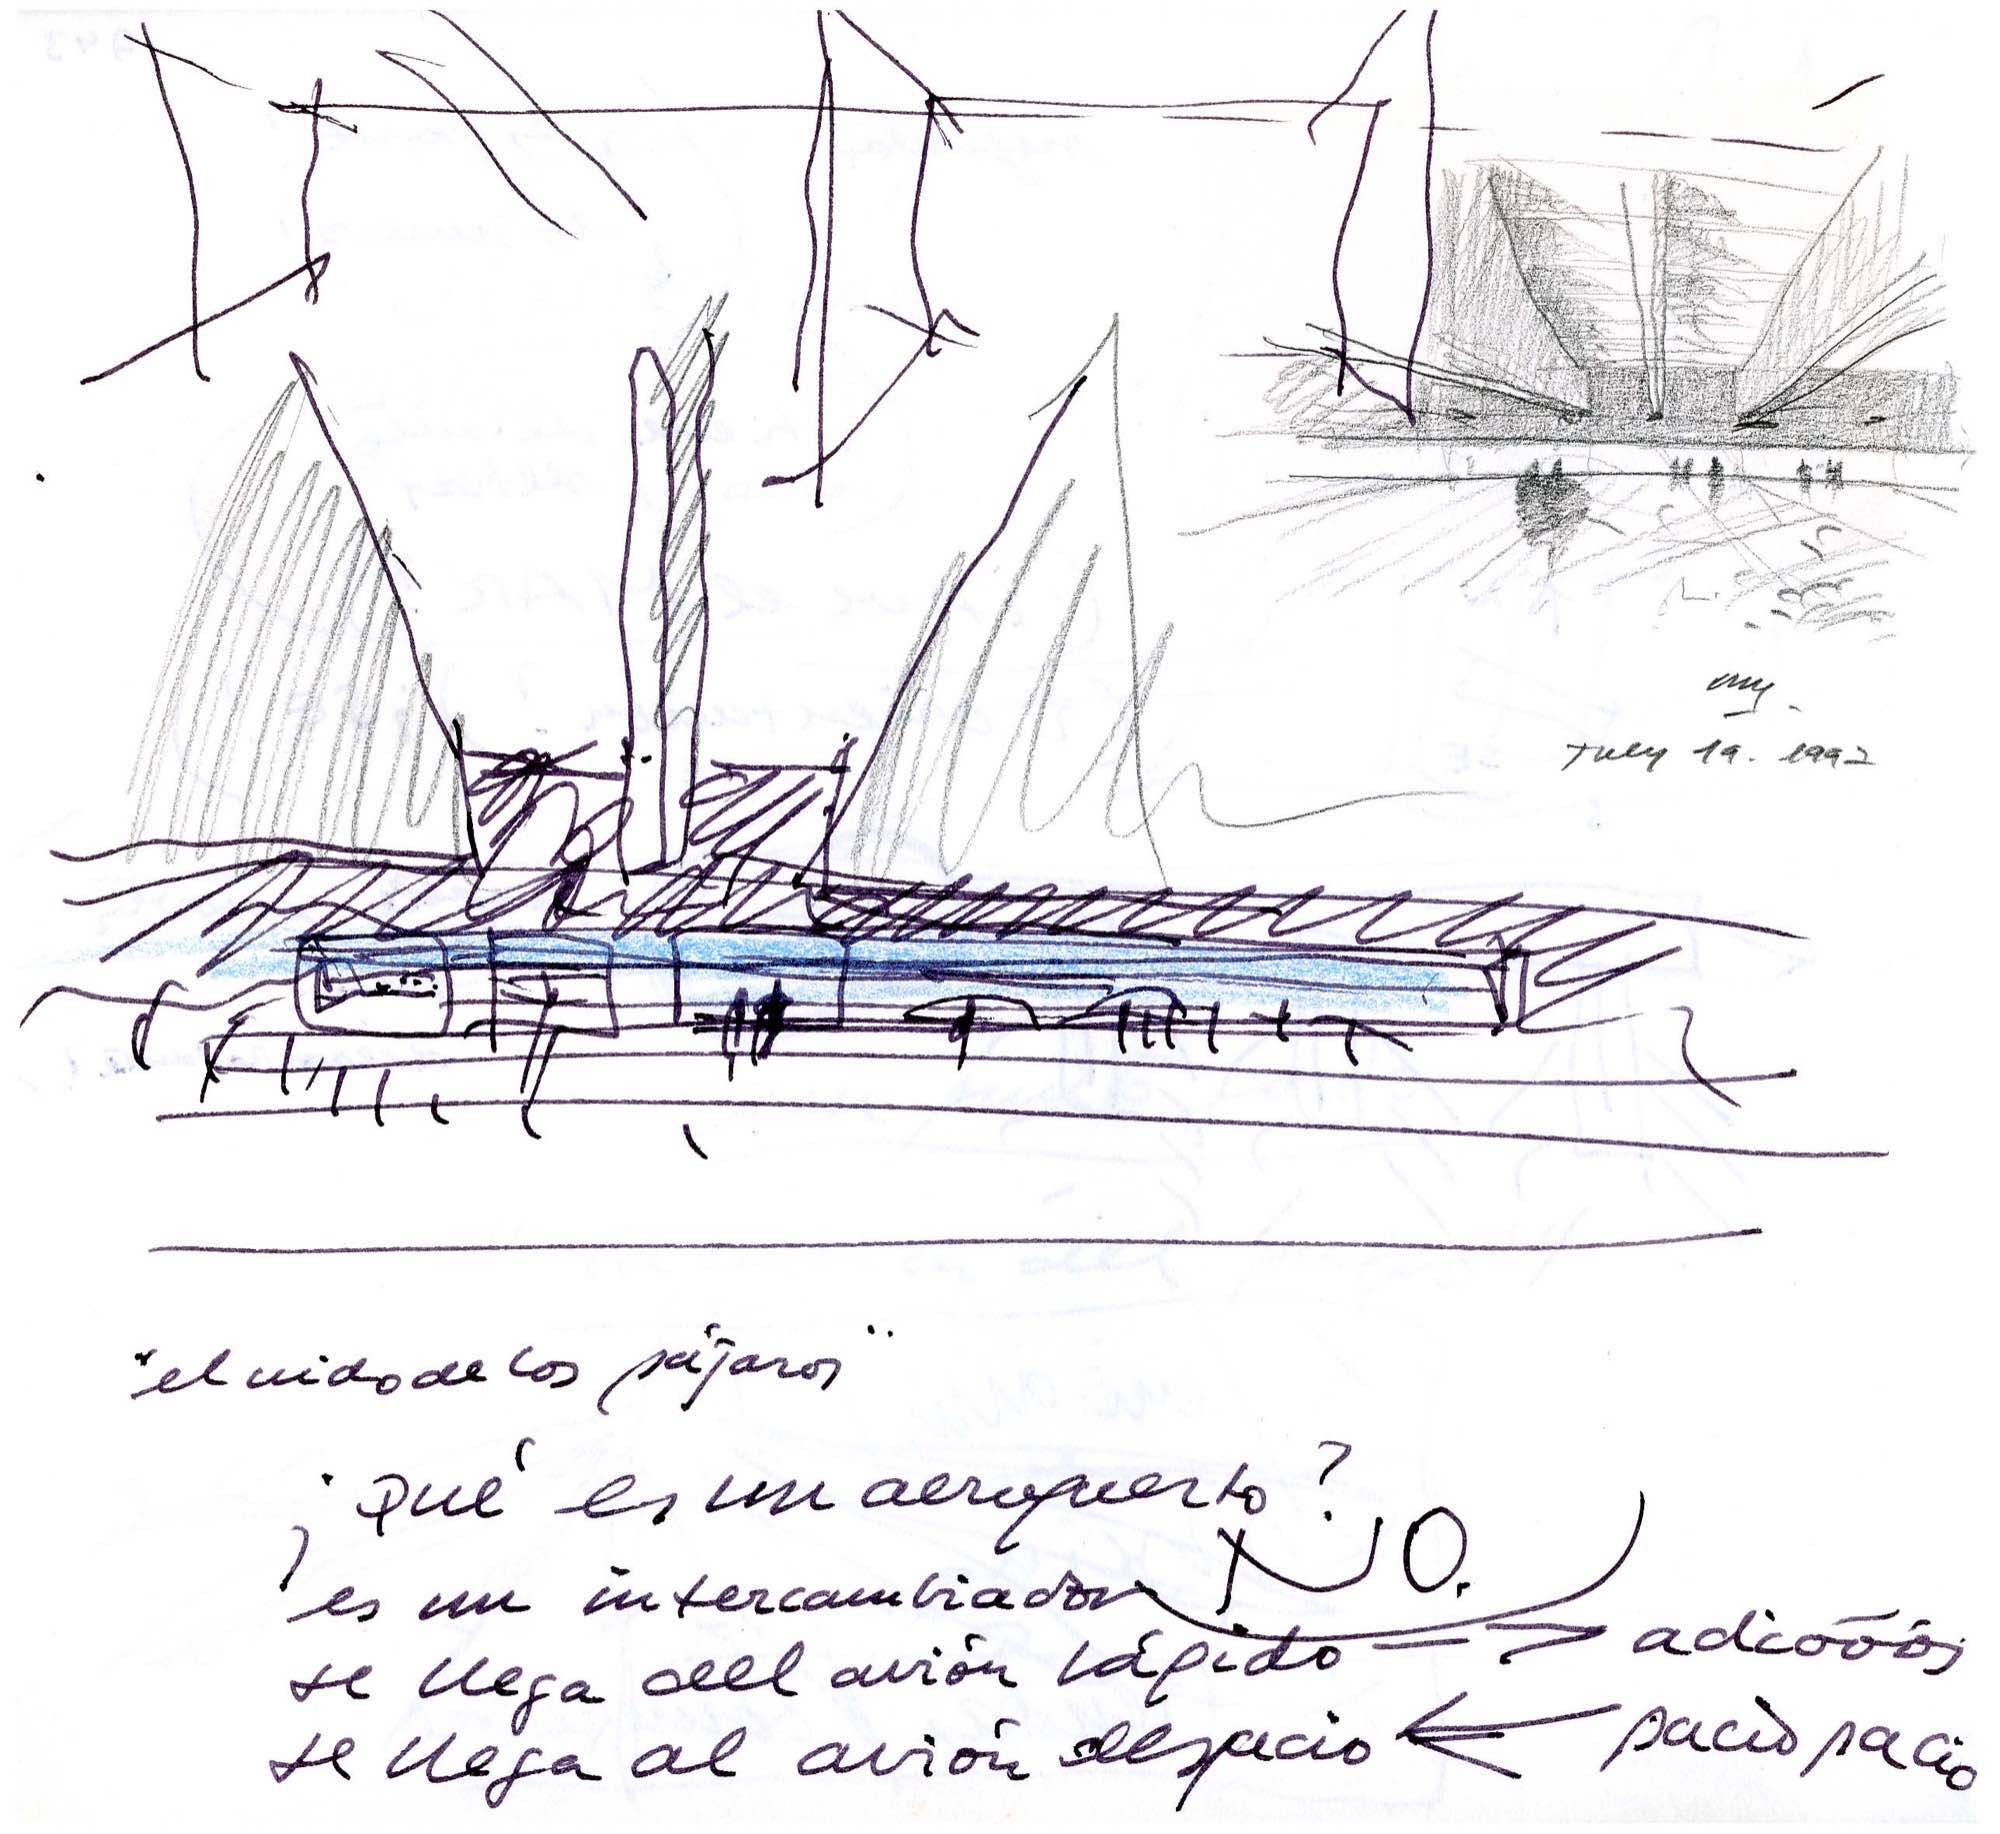 my.
July 19. 1992
"el nido de los pájaros"
¿Qué es un aeropuerto?
es un intercambiador NO.
se llega del avión rápido → adioōōs
se llega al avión despacio ← pacio pacio